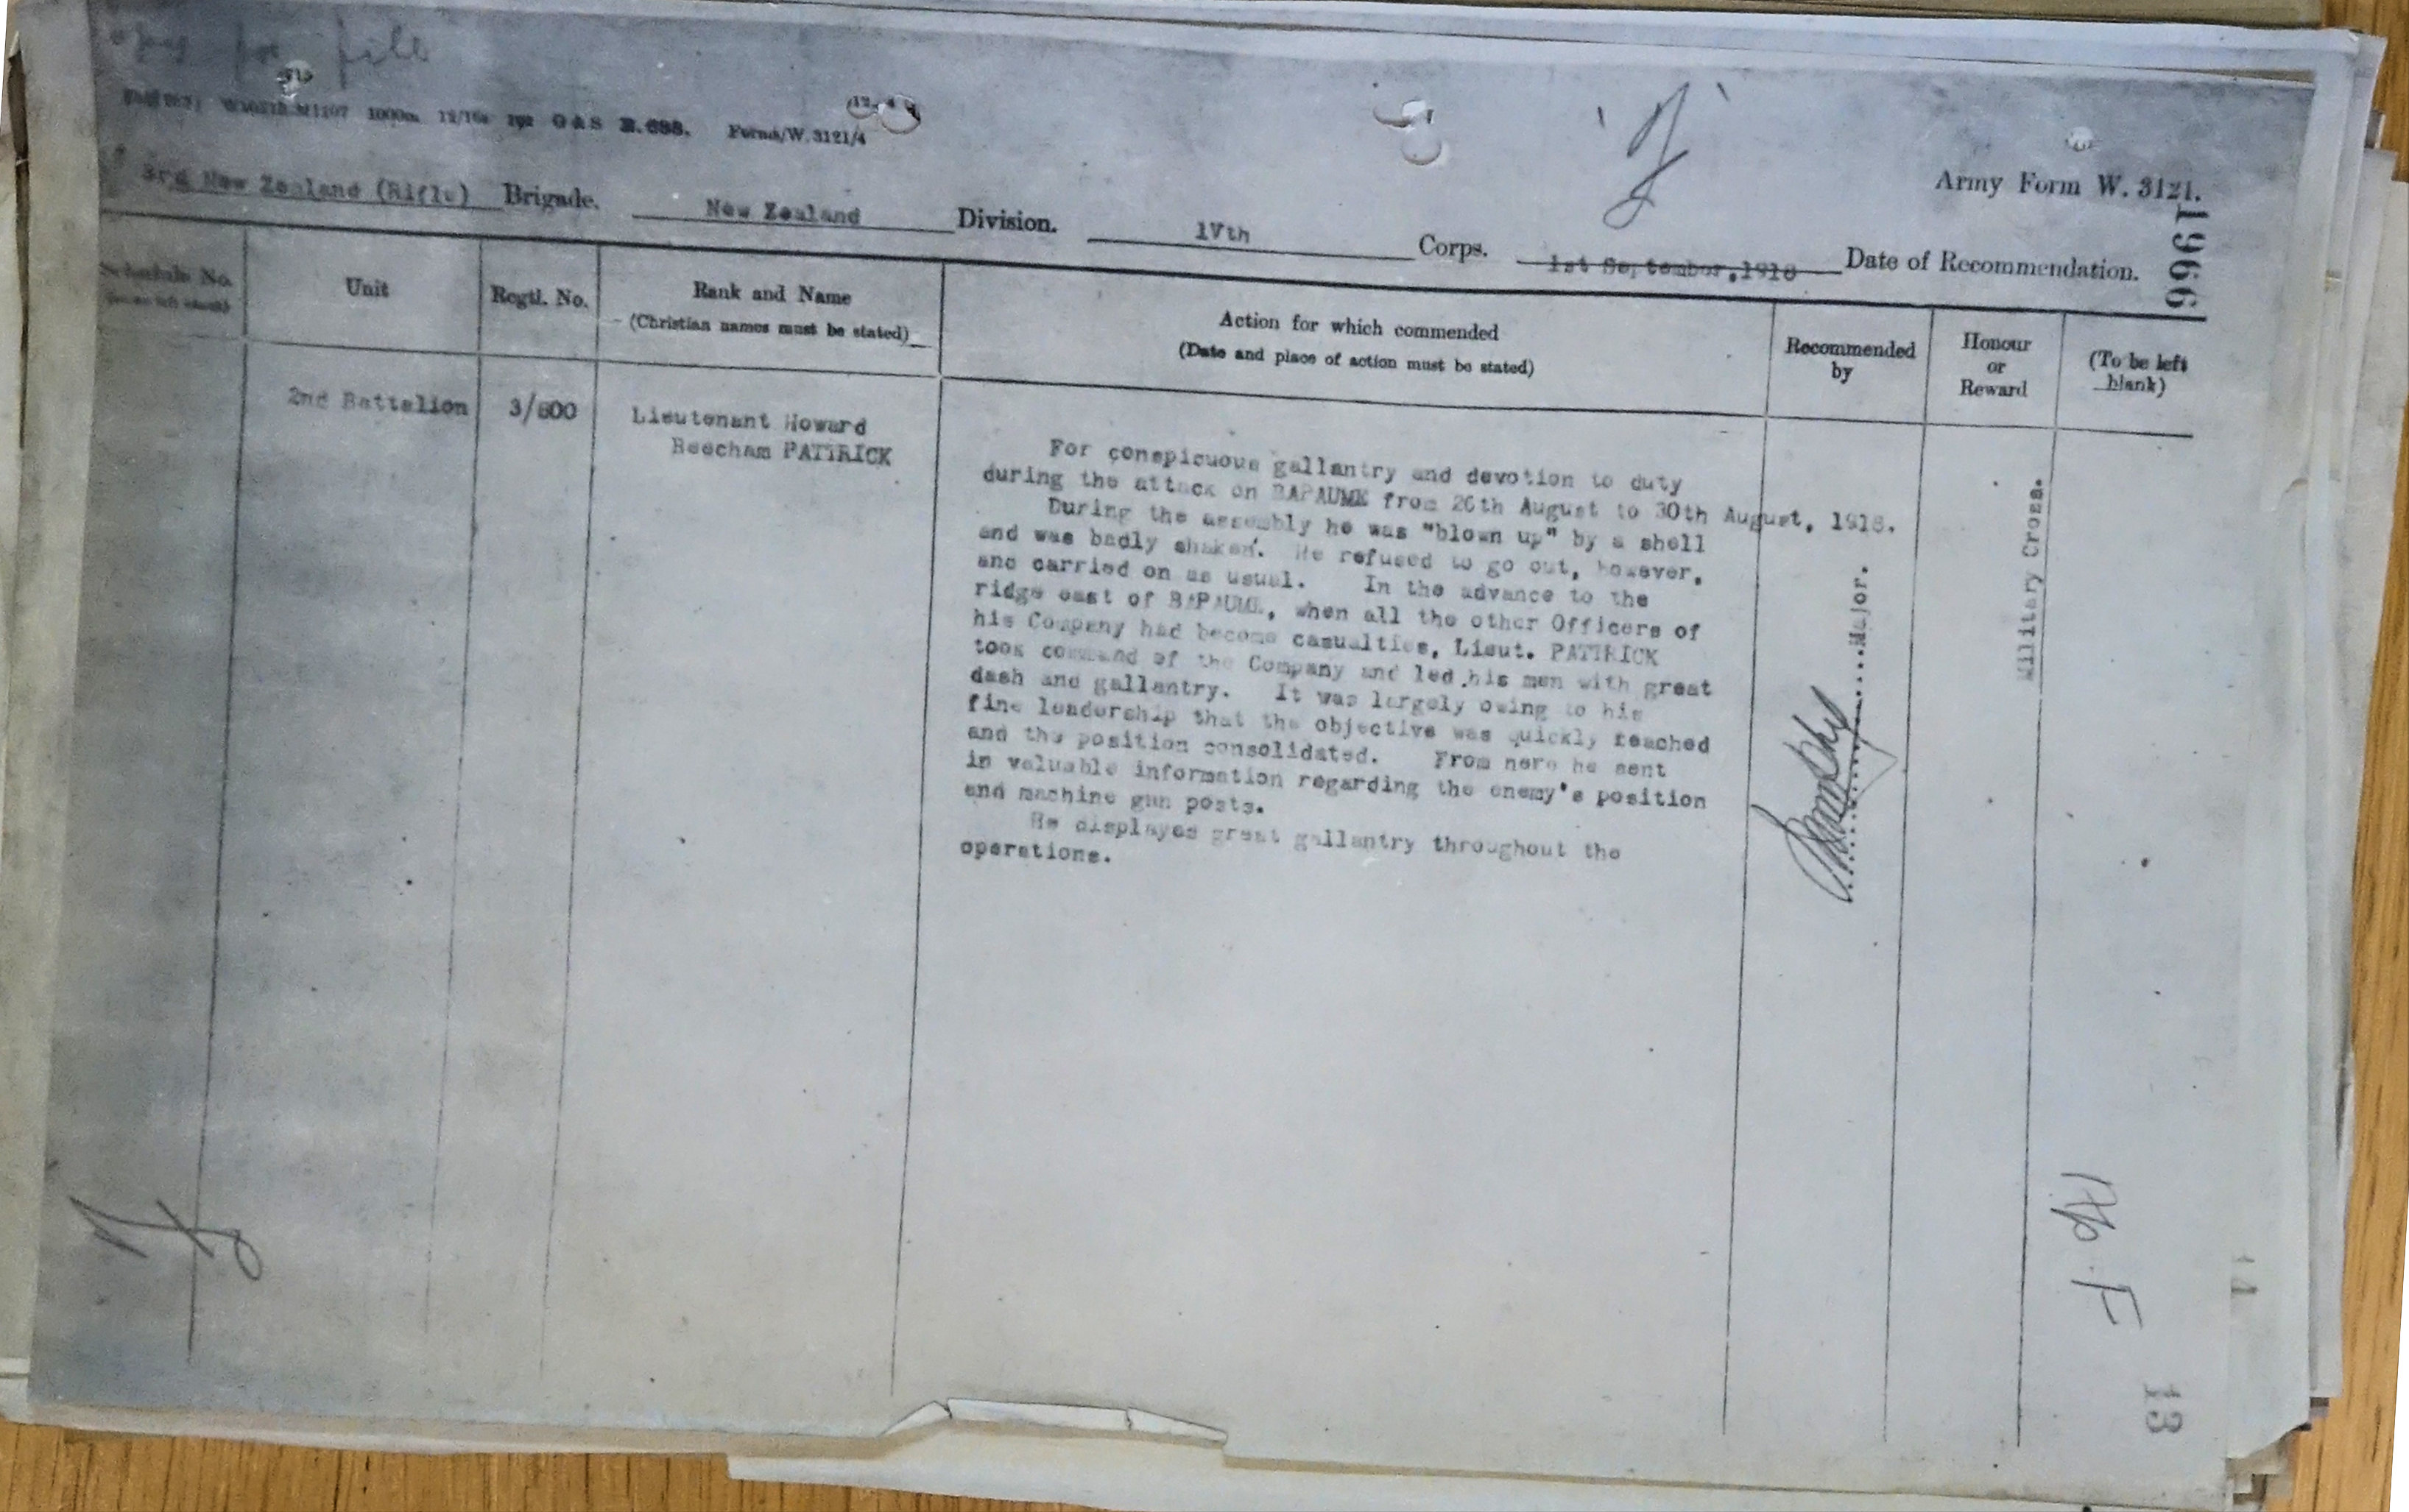 for file
1000m 12/16s G & S E.698. Forms/W.3121/4
Army Form W. 3121.
1966
3rd New Zealand (Rifle) Brigade. New Zealand Division. 1Vth Corps. 1st September,1918 Date of Recommendation.
Schedule No. Unit Regtl. No. Rank and Name Action for which commended Recommended by Honour or Reward (To be left blank)
(Christian names must be stated) (Date and place of action must be stated)
2nd Battalion 3/800 Lieutenant Howard
Beecham PATTRICK
For conspicuous gallantry and devotion to duty
during the attack on BAPAUME from 26th August to 30th August, 1918.
During the assembly he was "blown up" by a shell
and was badly shaken. He refused to go out, however,
and carried on as usual. In the advance to the
ridge east of BAPAUME, when all the other Officers of
his Company had become casualties, Lieut. PATTRICK
took command of the Company and led his men with great
dash and gallantry. It was largely owing to his
fine leadership that the objective was quickly reached
and the position consolidated. From here he sent
in valuable information regarding the enemy's position
and machine gun posts.
He displayed great gallantry throughout the
operations.
....Major.
Military Cross.
13